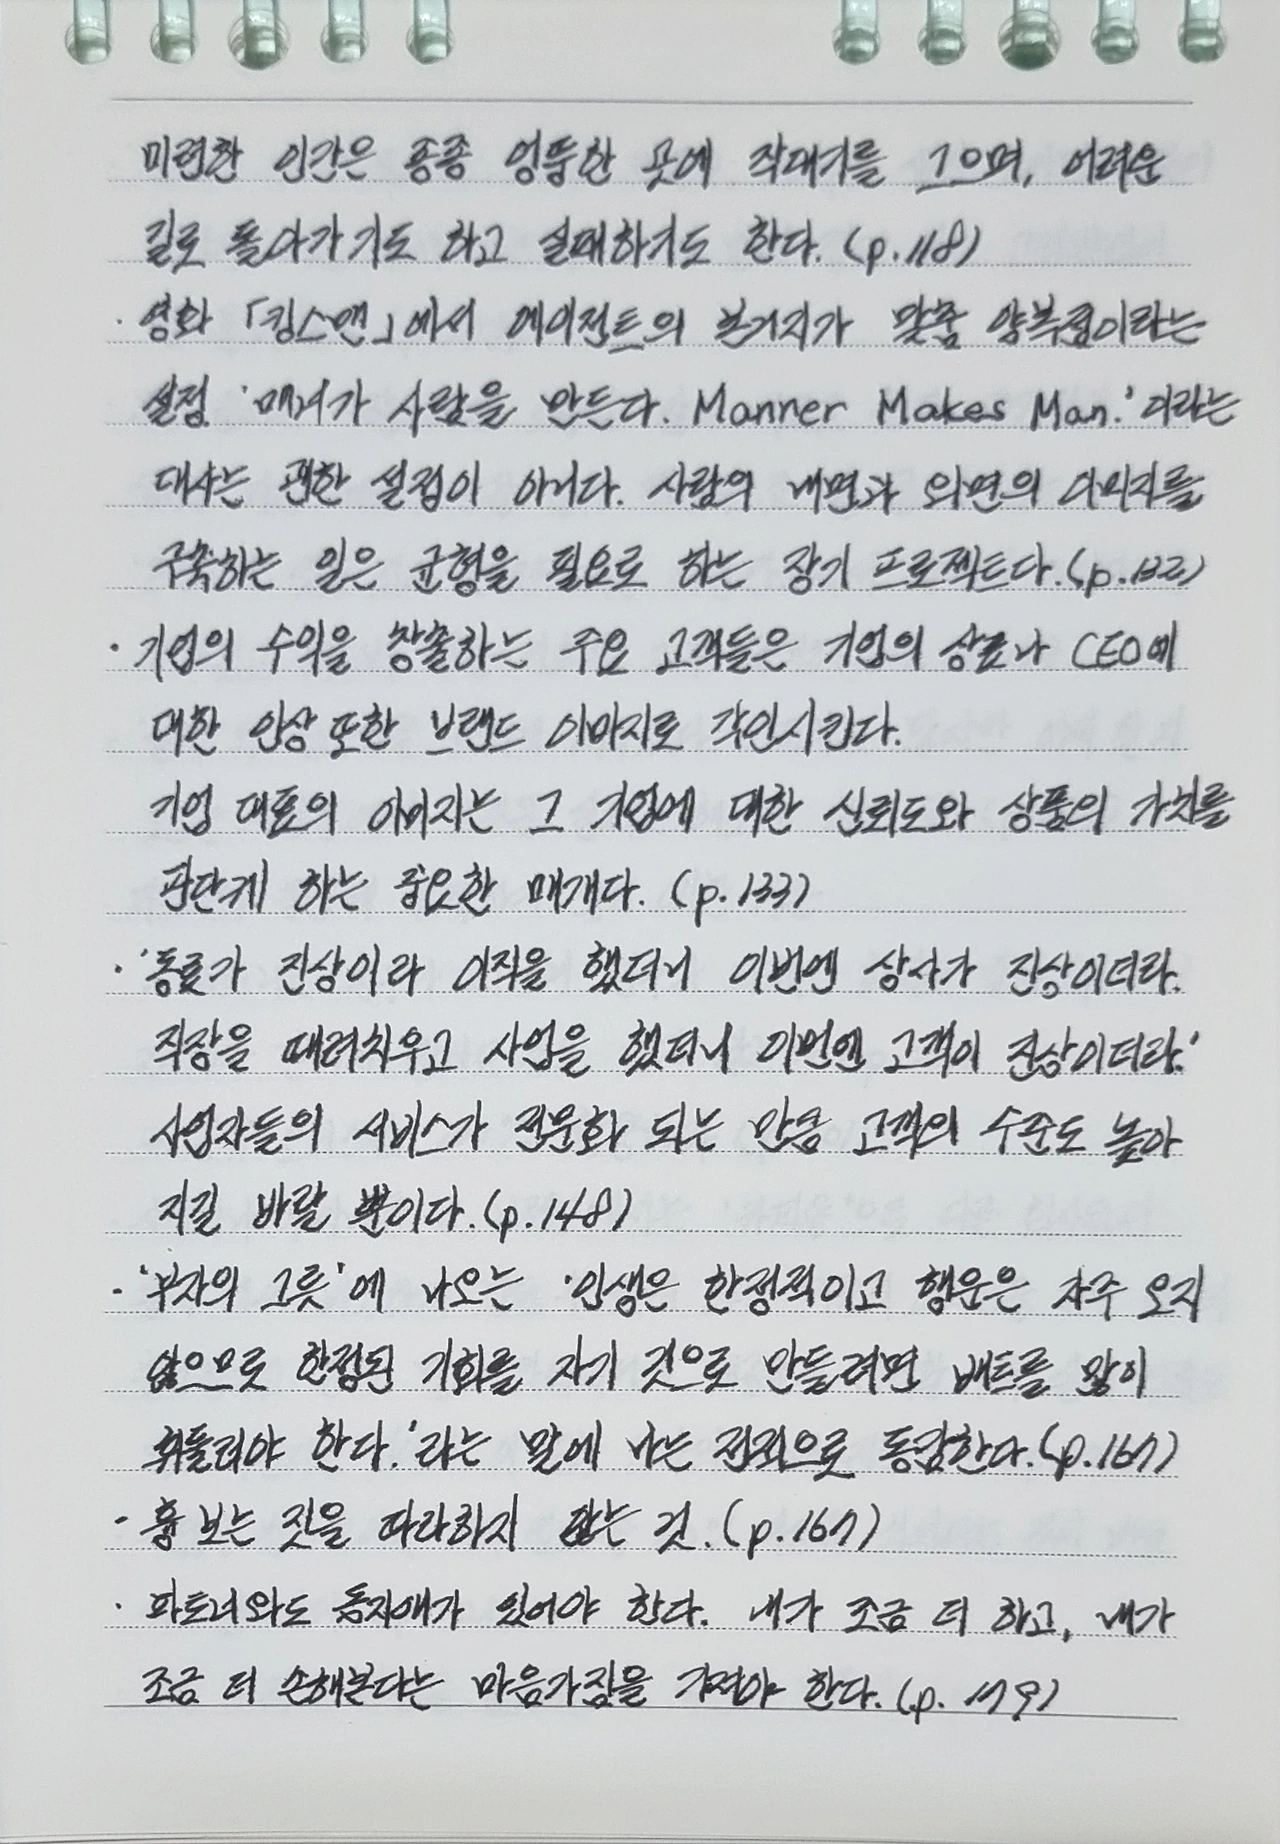 미련한 인간은 종종 엉뚱한 곳에 작대기를 그으며, 어려운
길로 돌아가기도 하고 실패하기도 한다. (p.118)
· 영화 「킹스맨」에서 에이전트의 본거지가 맞춤 양복점이라는
설정 '매너가 사람을 만든다. Manner Makes Man.' 이라는
대사는 괜한 설정이 아니다. 사람의 내면과 외면의 이미지를
구축하는 일은 균형을 필요로 하는 장기 프로젝트다. (p.132)
· 기업의 수익을 창출하는 주요 고객들은 기업의 상표나 CEO에
대한 인상 또한 브랜드 이미지로 각인시킨다.
기업 대표의 이미지는 그 기업에 대한 신뢰도와 상품의 가치를
판단케 하는 중요한 매개다. (p.133)
· '동료가 진상이라 이직을 했더니 이번엔 상사가 진상이더라.
직장을 때려치우고 사업을 했더니 이번엔 고객이 진상이더라.'
사업자들의 서비스가 전문화 되는 만큼 고객의 수준도 높아
지길 바랄 뿐이다. (p.148)
· '부자의 그릇'에 나오는 '인생은 한정적이고 행운은 자주 오지
않으므로 한정된 기회를 자기 것으로 만들려면 배트를 많이
휘둘러야 한다.'라는 말에 나는 전적으로 동감한다. (p.167)
· 흉 보는 짓을 따라하지 않는 것. (p.167)
· 파트너와도 동지애가 있어야 한다. 내가 조금 더 하고, 내가
조금 더 손해본다는 마음가짐을 가져야 한다. (p.179)